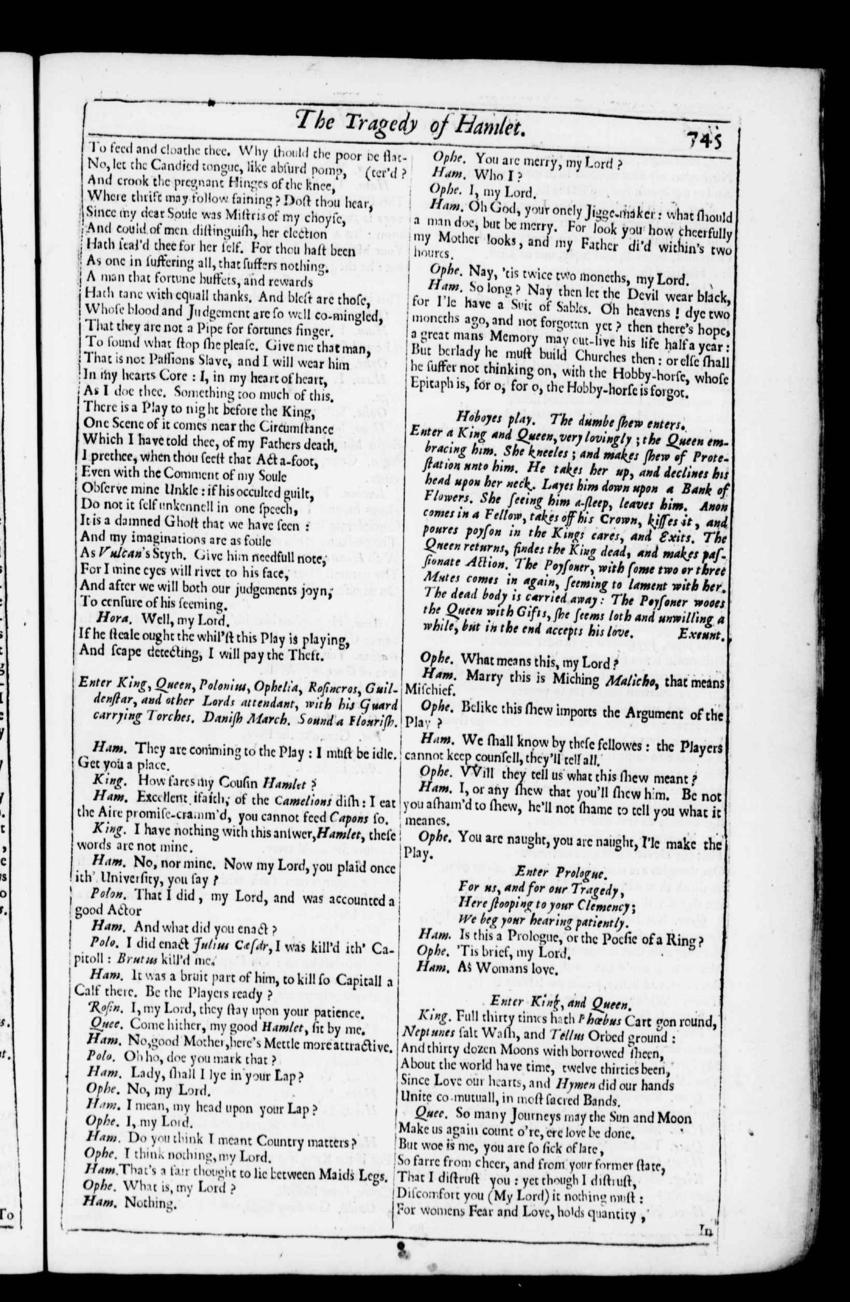 The Tragedy of Hamlet.
745
To feed and cloathe thee. Why ſhould the poor be flat-
No, let the Candied tongue, like abſurd pomp, (ter'd?
And crook the pregnant Hinges of the knee,
Where thrift may follow faining? Doſt thou hear,
Since my dear Soule was Miſtris of my choyſe,
And could of men diſtinguiſh, her election
Hath ſeal'd thee for her ſelf. For thou haſt been
As one in ſuffering all, that ſuffers nothing.
A man that fortune buffets, and rewards
Hath tane with equall thanks. And bleſt are thoſe,
Whoſe blood and Judgement are ſo well co-mingled,
That they are not a Pipe for fortunes finger.
To ſound what ſtop ſhe pleaſe. Give me that man,
That is not Paſſions Slave, and I will wear him
In my hearts Core: I, in my heart of heart,
As I doe thee. Something too much of this.
There is a Play to night before the King,
One Scene of it comes near the Circumſtance
Which I have told thee, of my Fathers death.
I prethee, when thou ſeeſt that Act a-foot,
Even with the Comment of my Soule
Obſerve mine Unkle: if his occulted guilt,
Do not it ſelf unkennell in one ſpeech,
It is a damned Ghoſt that we have ſeen:
And my imaginations are as foule
As Vulcan's Styth. Give him needfull note,
For I mine eyes will rivet to his face,
And after we will both our judgements joyn,
To cenſure of his ſeeming.
Hora. Well, my Lord.
If he ſteale ought the whil'ſt this Play is playing,
And ſcape detecting, I will pay the Theft.
Enter King, Queen, Polonius, Ophelia, Roſincros, Guil-
denſtar, and other Lords attendant, with his Guard
carrying Torches. Daniſh March. Sound a Flouriſh.
Ham. They are comming to the Play: I muſt be idle.
Get you a place.
King. How fares my Couſin Hamlet?
Ham. Excellent ifaith, of the Camelions diſh: I eat
the Aire promiſe-cramm'd, you cannot feed Capons ſo.
King. I have nothing with this anſwer, Hamlet, theſe
words are not mine.
Ham. No, nor mine. Now my Lord, you plaid once
ith' Univerſity, you ſay?
Polon. That I did, my Lord, and was accounted a
good Actor
Ham. And what did you enact?
Polo. I did enact Julius Cæſar, I was kill'd ith' Ca-
pitoll: Brutus kill'd me.
Ham. It was a bruit part of him, to kill ſo Capitall a
Calf there. Be the Players ready?
Roſin. I, my Lord, they ſtay upon your patience.
Quee. Come hither, my good Hamlet, ſit by me.
Ham. No, good Mother, here's Mettle more attractive.
Polo. Oh ho, doe you mark that?
Ham. Lady, ſhall I lye in your Lap?
Ophe. No, my Lord.
Ham. I mean, my head upon your Lap?
Ophe. I, my Lord.
Ham. Do you think I meant Country matters?
Ophe. I think nothing, my Lord.
Ham. That's a fair thought to lie between Maids Legs.
Ophe. What is, my Lord?
Ham. Nothing.
Ophe. You are merry, my Lord?
Ham. Who I?
Ophe. I, my Lord.
Ham. Oh God, your onely Jigge-maker: what ſhould
a man doe, but be merry. For look you how cheerfully
my Mother looks, and my Father di'd within's two
houres.
Ophe. Nay, 'tis twice two moneths, my Lord.
Ham. So long? Nay then let the Devil wear black,
for I'le have a Suit of Sables. Oh heavens! dye two
moneths ago, and not forgotten yet? then there's hope,
a great mans Memory may out-live his life half a year:
But berlady he muſt build Churches then: or elſe ſhall
he ſuffer not thinking on, with the Hobby-horſe, whoſe
Epitaph is, for o, for o, the Hobby-horſe is forgot.
Hoboyes play. The dumbe ſhew enters.
Enter a King and Queen, very lovingly; the Queen em-
bracing him. She kneeles; and makes ſhew of Prote-
ſtation unto him. He takes her up, and declines his
head upon her neck. Layes him down upon a Bank of
Flowers. She ſeeing him a-ſleep, leaves him. Anon
comes in a Fellow, takes off his Crown, kiſſes it, and
poures poyſon in the Kings eares, and Exits. The
Queen returns, findes the King dead, and makes paſ-
ſionate Action. The Poyſoner, with ſome two or three
Mutes comes in again, ſeeming to lament with her.
The dead body is carried away: The Poyſoner wooes
the Queen with Gifts, ſhe ſeems loth and unwilling a
while, but in the end accepts his love. Exeunt.
Ophe. What means this, my Lord?
Ham. Marry this is Miching Malicho, that means
Miſchief.
Ophe. Belike this ſhew imports the Argument of the
Play?
Ham. We ſhall know by theſe fellowes: the Players
cannot keep counſell, they'll tell all.
Ophe. VVill they tell us what this ſhew meant?
Ham. I, or any ſhew that you'll ſhew him. Be not
you aſham'd to ſhew, he'll not ſhame to tell you what it
meanes.
Ophe. You are naught, you are naught, I'le make the
Play.
Enter Prologue.
For us, and for our Tragedy,
Here ſtooping to your Clemency;
We beg your hearing patiently.
Ham. Is this a Prologue, or the Poeſie of a Ring?
Ophe. 'Tis brief, my Lord.
Ham. As Womans love.
Enter King, and Queen.
King. Full thirty times hath Phœbus Cart gon round,
Neptunes ſalt Waſh, and Tellus Orbed ground:
And thirty dozen Moons with borrowed ſheen,
About the world have time, twelve thirties been,
Since Love our hearts, and Hymen did our hands
Unite co-mutuall, in moſt ſacred Bands.
Quee. So many Journeys may the Sun and Moon
Make us again count o're, ere love be done.
But woe is me, you are ſo ſick of late,
So farre from cheer, and from your former ſtate,
That I diſtruſt you: yet though I diſtruſt,
Diſcomfort you (My Lord) it nothing muſt:
For womens Fear and Love, holds quantity,
In
To